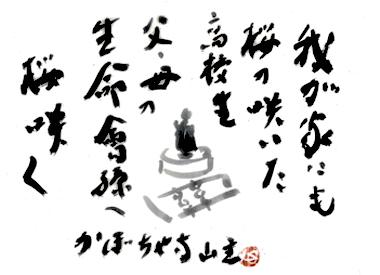 我が家にも
桜の咲いた
高校生
父、母の
生命曾孫へ
桜咲く
かぼちゃ寺山主